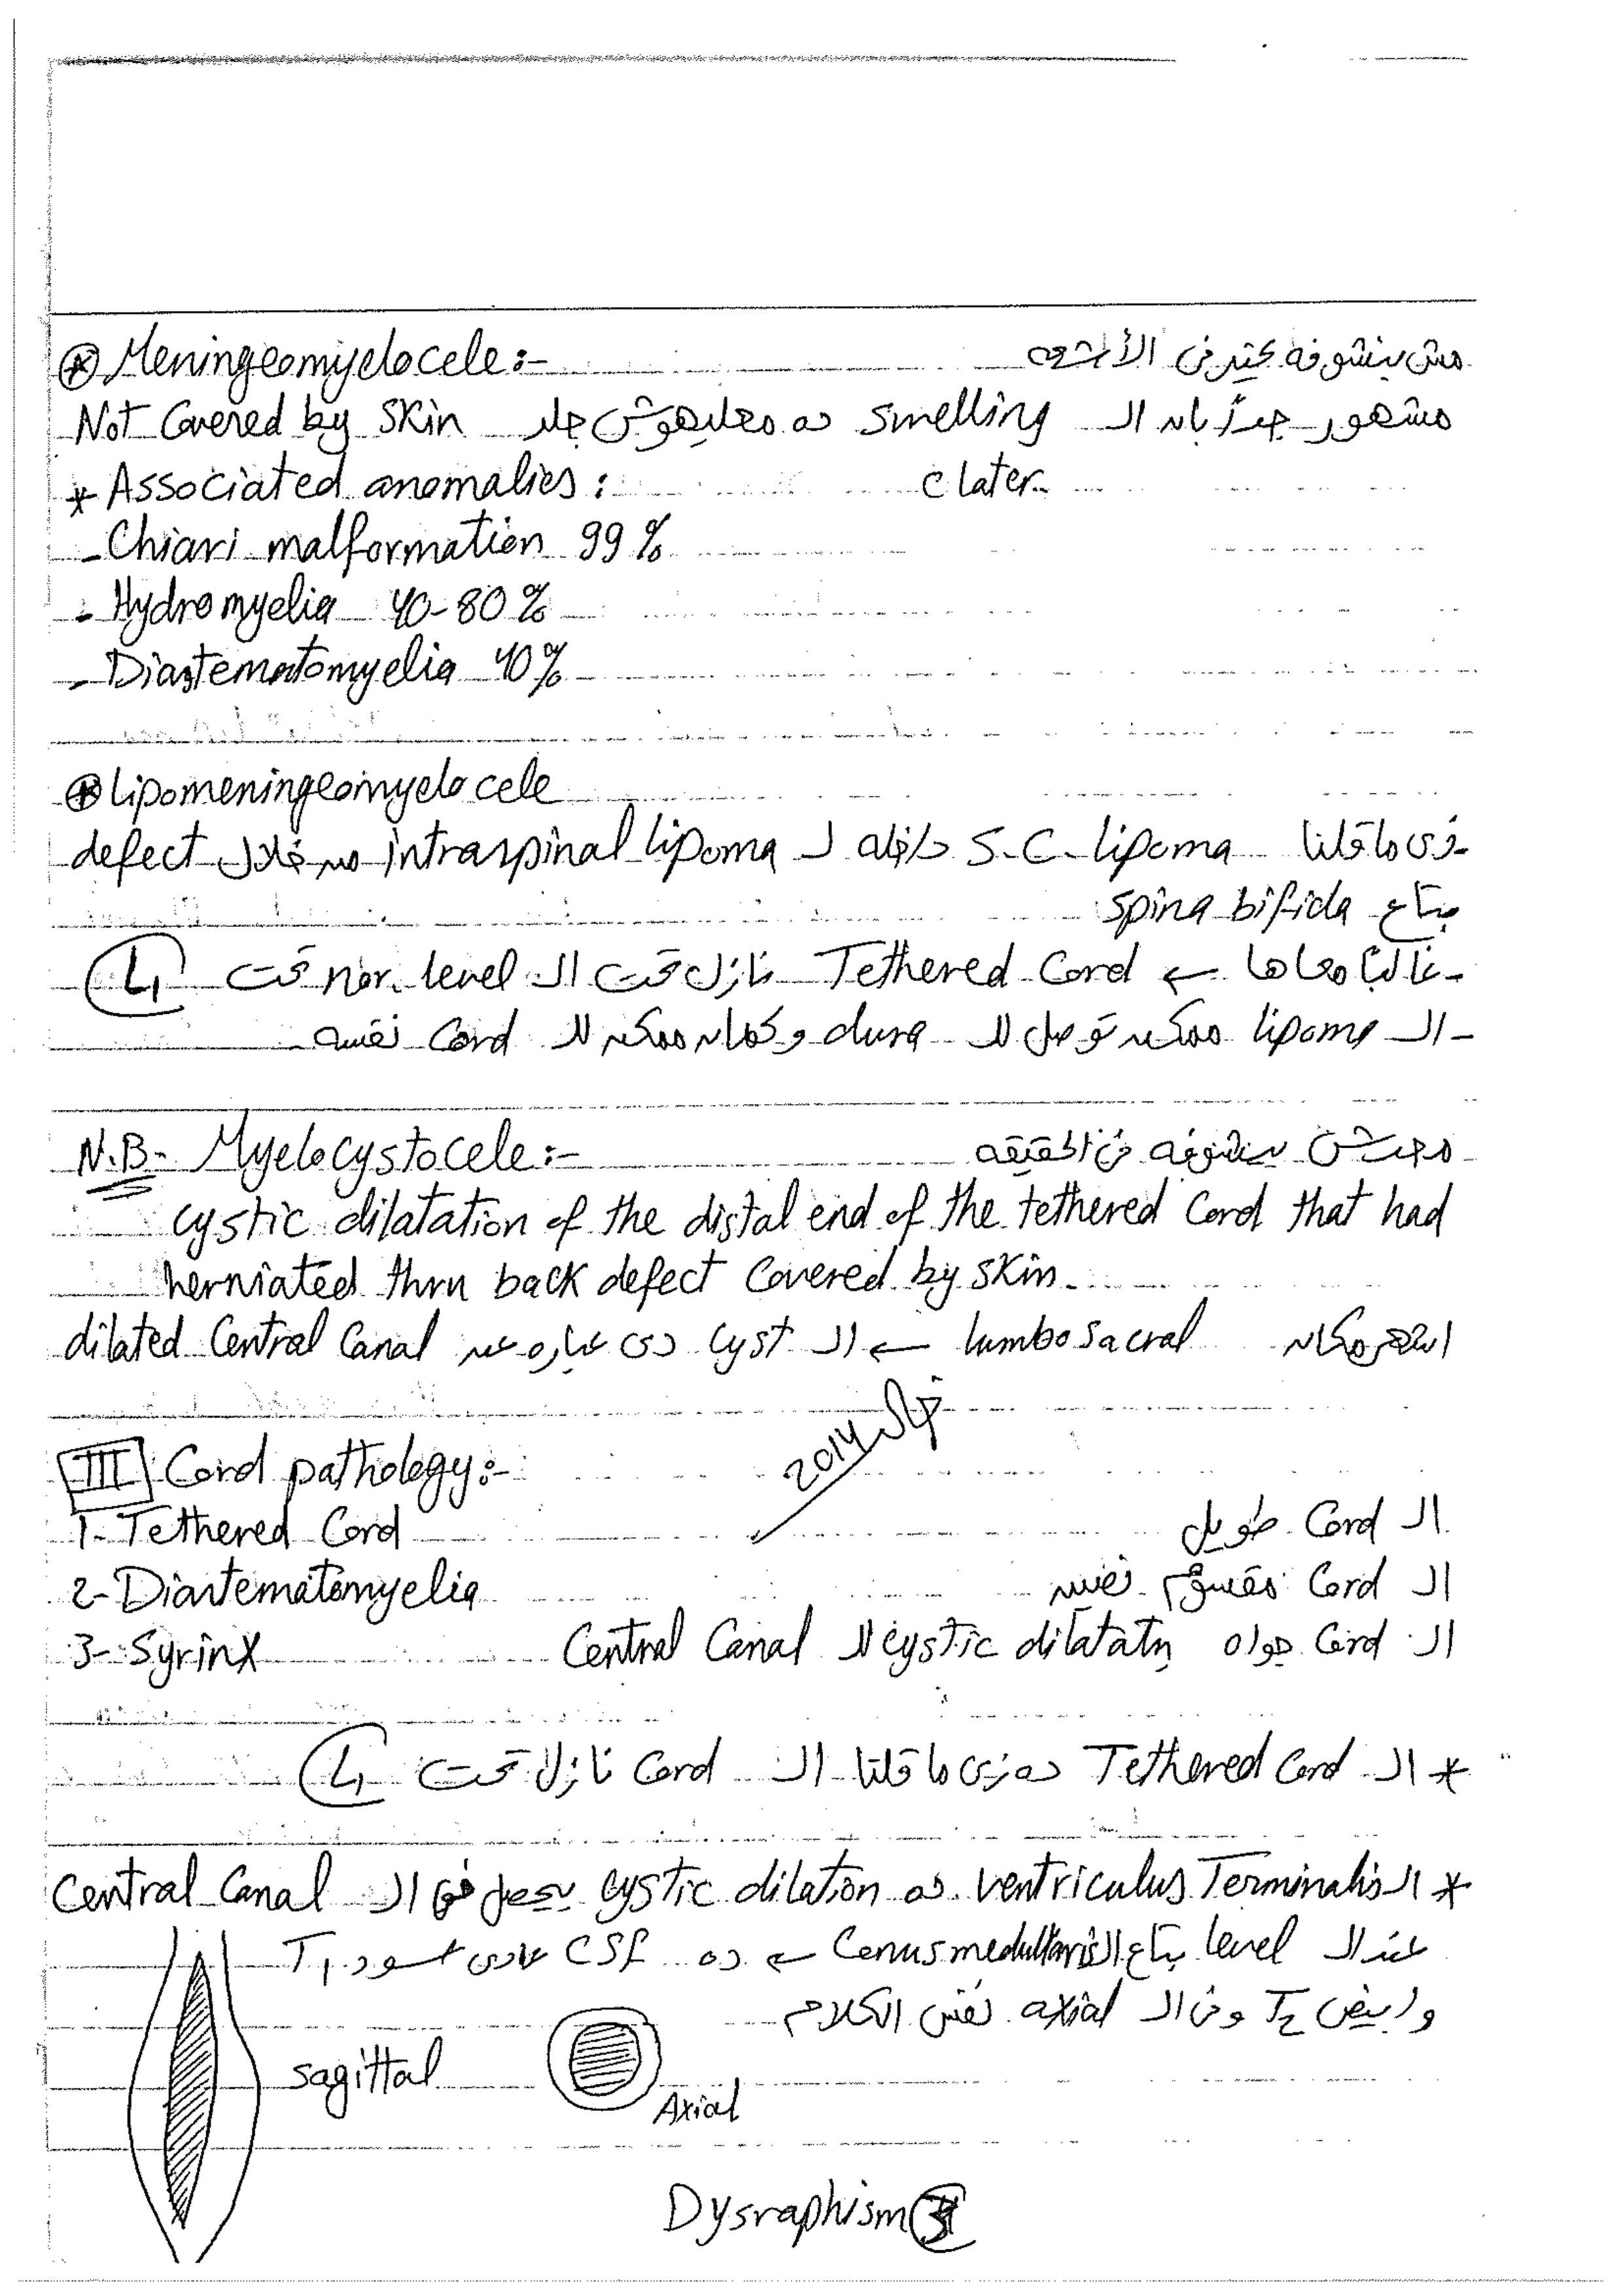 ⊛ Meningeomyelocele:- مش بنشوفه كتير فى الأشعه
Not Covered by skin ده معليهوش جلد smelling مشهور جداً بإن الـ
* Associated anomalies: c later
- Chiari malformation 99 %
- Hydromyelia 40-80 %
- Diastematomyelia 40 %
⊛ lipomeningeomyelocele
- زى ما قلنا S.C. lipoma داخله لـ intraspinal lipoma من خلال defect
بتاع spina bifida
- غالباً معاها ← Tethered Cord نازل تحت الـ nor. level تحت L1
- الـ lipoma ممكن توصل للـ dura وكمان ممكن للـ Cord نفسه
N.B- Myelocystocele:- مبنشوفه فى الحقيقه
cystic dilatation of the distal end of the tethered Cord that had
herniated thru back defect Covered by skin.
اشهر مكان lumbosacral ← الـ cyst دى عباره عن dilated Central Canal
2014
III Cord pathology:-
1- Tethered Cord الـ Cord طويل
2- Diastematomyelia الـ Cord مقسوم نصين
3- Syrinx الـ Cord جواه cystic dilatatn للـ Central Canal
* الـ Tethered Cord ده زى ما قلنا الـ Cord نازل تحت L1
* الـ ventriculus Terminalis ده cystic dilation بيحصل فى الـ Central Canal
عند الـ level بتاع الـ Conus medullaris ← ده CSF عادى اسود T1
وابيض T2 وفى الـ axial نفس الكلام
sagittal
Axial
Dysraphism 3